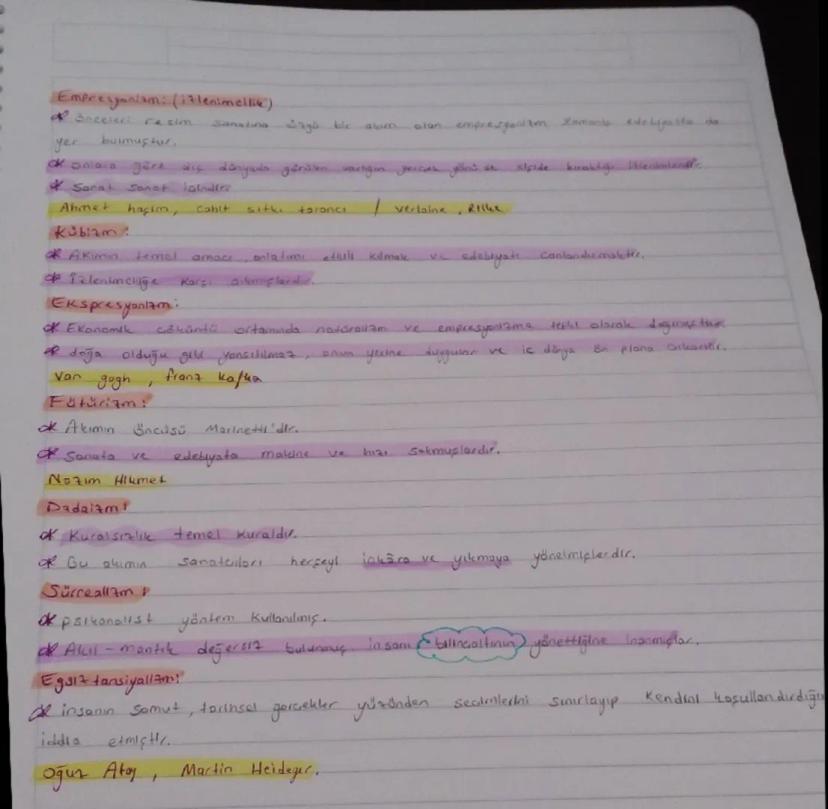 Empresyonizm: (izlenimcilik)
* Önceleri resim sanatına özgü bir akım olan empresyonizm zamanla edebiyatta da
yer bulmuştur.
* onlara göre dış dünyada görülen varlığın gerçek yönü de kişide bıraktığı izlenimlerdir.
* Sanat sanat içindir.
Ahmet haşim, cahit sıtkı tarancı / verlaine, Rilke
Kübizm:
* Akımın temel amacı, anlatımı etkili kılmak ve edebiyatı canlandırmaktır.
* İzlenimciliğe karşı çıkmışlardır.
Ekspresyonizm:
* Ekonomik çöküntü ortamında natüralizm ve empresyonizme tepki olarak doğmuştur.
* doğa olduğu gibi yansıtılmaz, onun yerine duygular ve iç dünya ön plana çıkarılır.
Van gogh, franz kafka
Fütürizm:
* Akımın öncüsü Marinetti'dir.
* Sanata ve edebiyata makine ve hızı sokmuşlardır.
Nazım Hikmet
Dadaizm:
* Kuralsızlık temel kuraldır.
* Bu akımın sanatçıları herşeyi inkâra ve yıkmaya yönelmişlerdir.
Sürrealizm:
* psikanalist yöntem kullanılmış.
* Akıl-mantık değersiz bulunmuş insanı bilinçaltının yönettiğine inanmışlar.
Egsiztansiyalizm:
* insanın somut, tarihsel gerçekler yüzünden seçimlerini sınırlayıp kendini koşullandırdığı
iddia etmiştir.
Oğuz Atay, Martin Heideger.